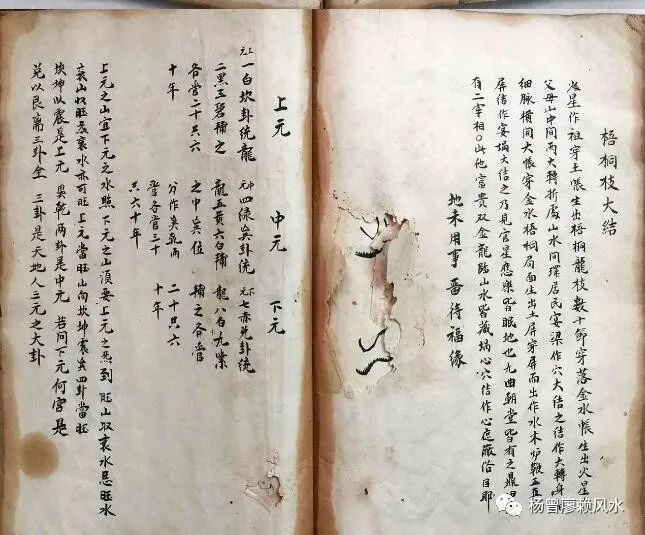 梧桐枝大結
星作祖穿土帳生出梧桐龍枝數十節穿落金水帳生出火星
父母山中間兩大轉折處山水同環居民宴梁作穴大結之結作大轉身
細脉横開大帳穿金水梧桐局面生出土屏穿屏而出作水木
屏結作宴塲大結之乃見官星恋樂皆眠地也九曲朝堂皆有之鼎甲
有二宰相○此他富貴双金龍踏山水皆藏塲心穴結作心庭嚴俗目耶
地未用事 畱待福缘
上元 中元 下元
上元一白坎卦统龍
二黑三碧補之
各管二十共六
十年
中元四渌巽卦统
龍五黄六白補
之中央位
分作巽乾两
管各管三十
共六十年
下元七赤兑卦统
龍八白九紫
補之各管
二十共六
十年
上元之山宜下元之水照下元之山頂要上元之炁到旺山収衰水忌旺水
衰山収旺炁衰水亦可旺上元當旺山向坎坤震巽四卦當旺
坎坤以震是上元 巽乾两卦是中元 若问下元何宫是
兑以艮离三卦全 三卦是天地人三元之大卦
杨曾廖赖风水